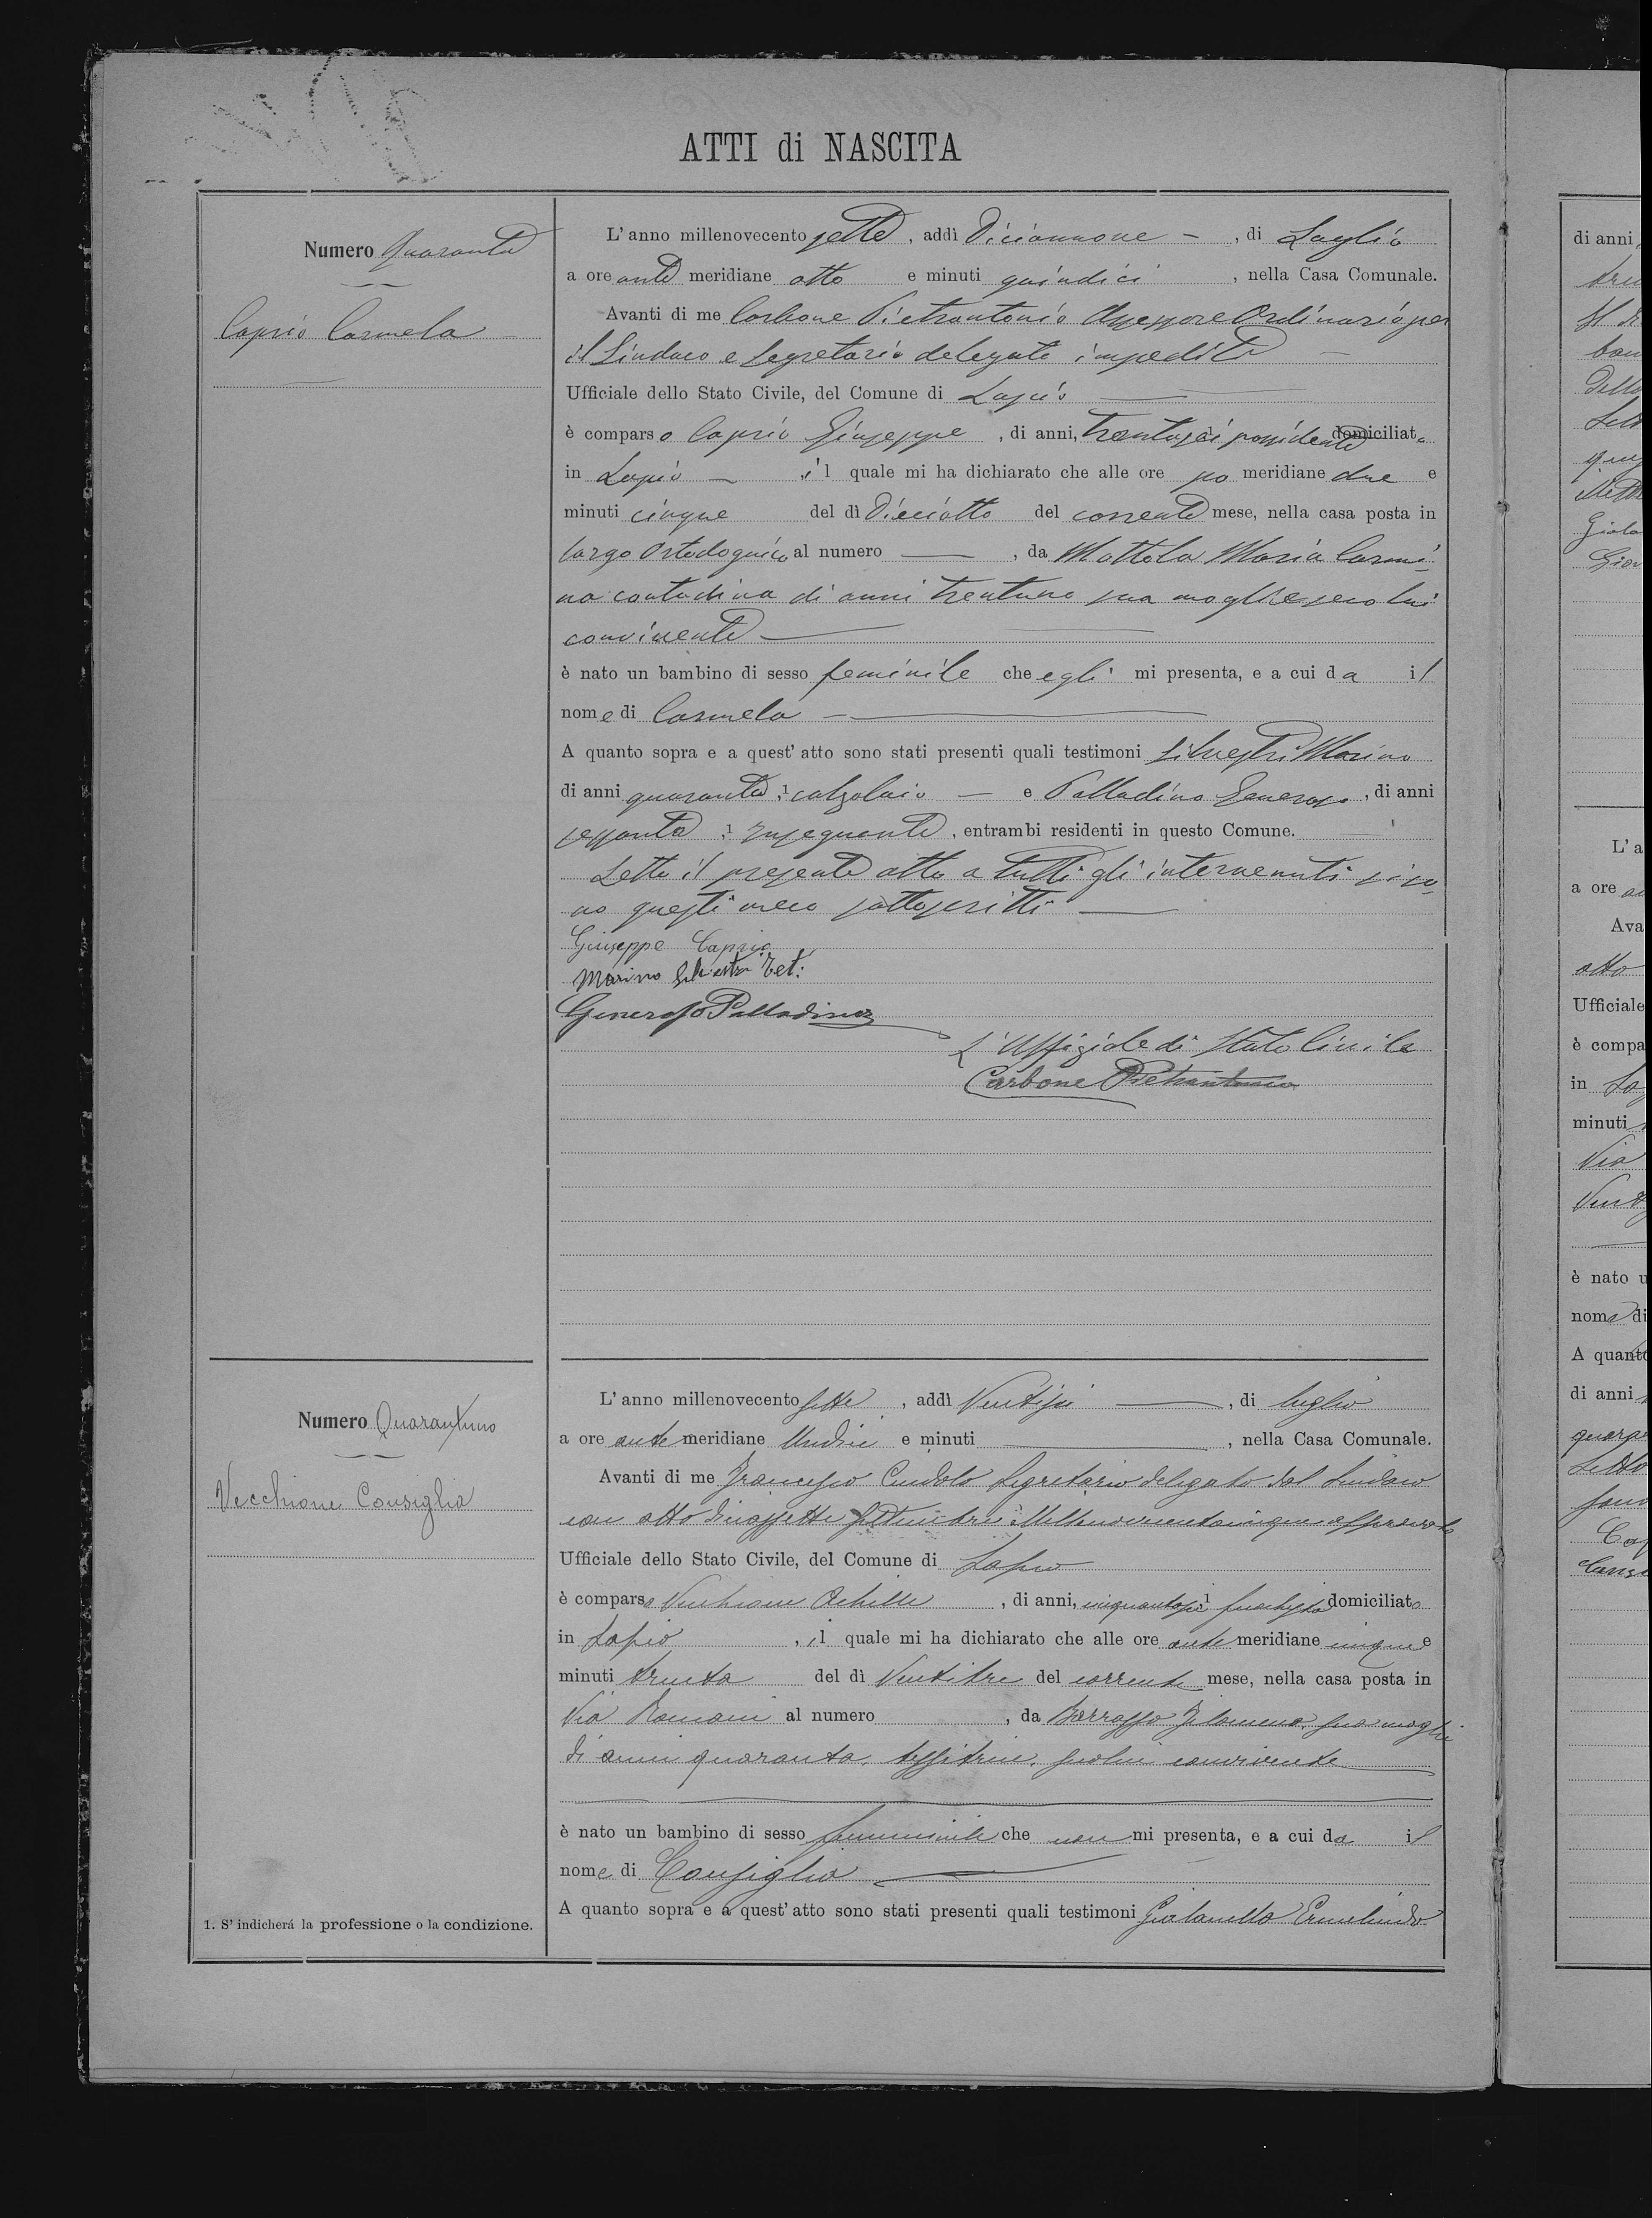 ATTI di NASCITA
Numero Quaranta
Caprio Carmela
L'anno millenovecento sette, addì Diciannove — , di Luglio
a ore ante meridiane otto e minuti quindici , nella Casa Comunale.
Avanti di me Carbone Pietrantonio Assessore Ordinario per
il Sindaco e Segretario delegato impediti —
Ufficiale dello Stato Civile, del Comune di Lapio —
è comparso Caprio Giuseppe , di anni, trentasei possidente domiciliato
in Lapio — , il quale mi ha dichiarato che alle ore po meridiane due e
minuti cinque del dì Dieciotto del corrente mese, nella casa posta in
largo al numero — , da Mottola Maria Carmi-
na contadina di anni trentuno sua moglie seco lui
convivente —
è nato un bambino di sesso feminile che egli mi presenta, e a cui da il
nome di Carmela —
A quanto sopra e a quest' atto sono stati presenti quali testimoni Silvestri Marino
di anni quaranta ,1 calzolaio — e Palladino Generoso , di anni
sessanta ,1 , entrambi residenti in questo Comune.
Letto il presente atto a tutti gli intervenuti si so-
no questi meco sottoscritti —
Giuseppe Caprio
Marino Silvestri Tet:
Generoso Palladino
L'Uffiziale di Stato Civile
Carbone Pietrantonio
Numero Quarantuno
Vecchione Consiglia
L'anno millenovecento sette , addì Ventisei — , di luglio
a ore ante meridiane Undici e minuti — , nella Casa Comunale.
Avanti di me Francesco Segretario delegato dal Sindaco
con atto diciassette Settembre Millenovecentocinque approvato
Ufficiale dello Stato Civile, del Comune di Lapio
è comparso Vecchione Achille , di anni, cinquantasei 1 domiciliato
in Lapio , il quale mi ha dichiarato che alle ore ante meridiane cinque e
minuti trenta del dì Ventitre del corrente mese, nella casa posta in
Via Romani al numero , da Barrasso Filomena sua moglie
di anni quaranta, tessitrice, seco lui convivente —
è nato un bambino di sesso femminile che non mi presenta, e a cui da il
nome di Consiglia —
A quanto sopra e a quest' atto sono stati presenti quali testimoni Ermelindo
1. S' indicherá la professione o la condizione.
di anni
L' a
a ore
Ava
otto
Ufficiale
è compa
in La
minuti
Via
è nato u
nome di
A quanto
di anni